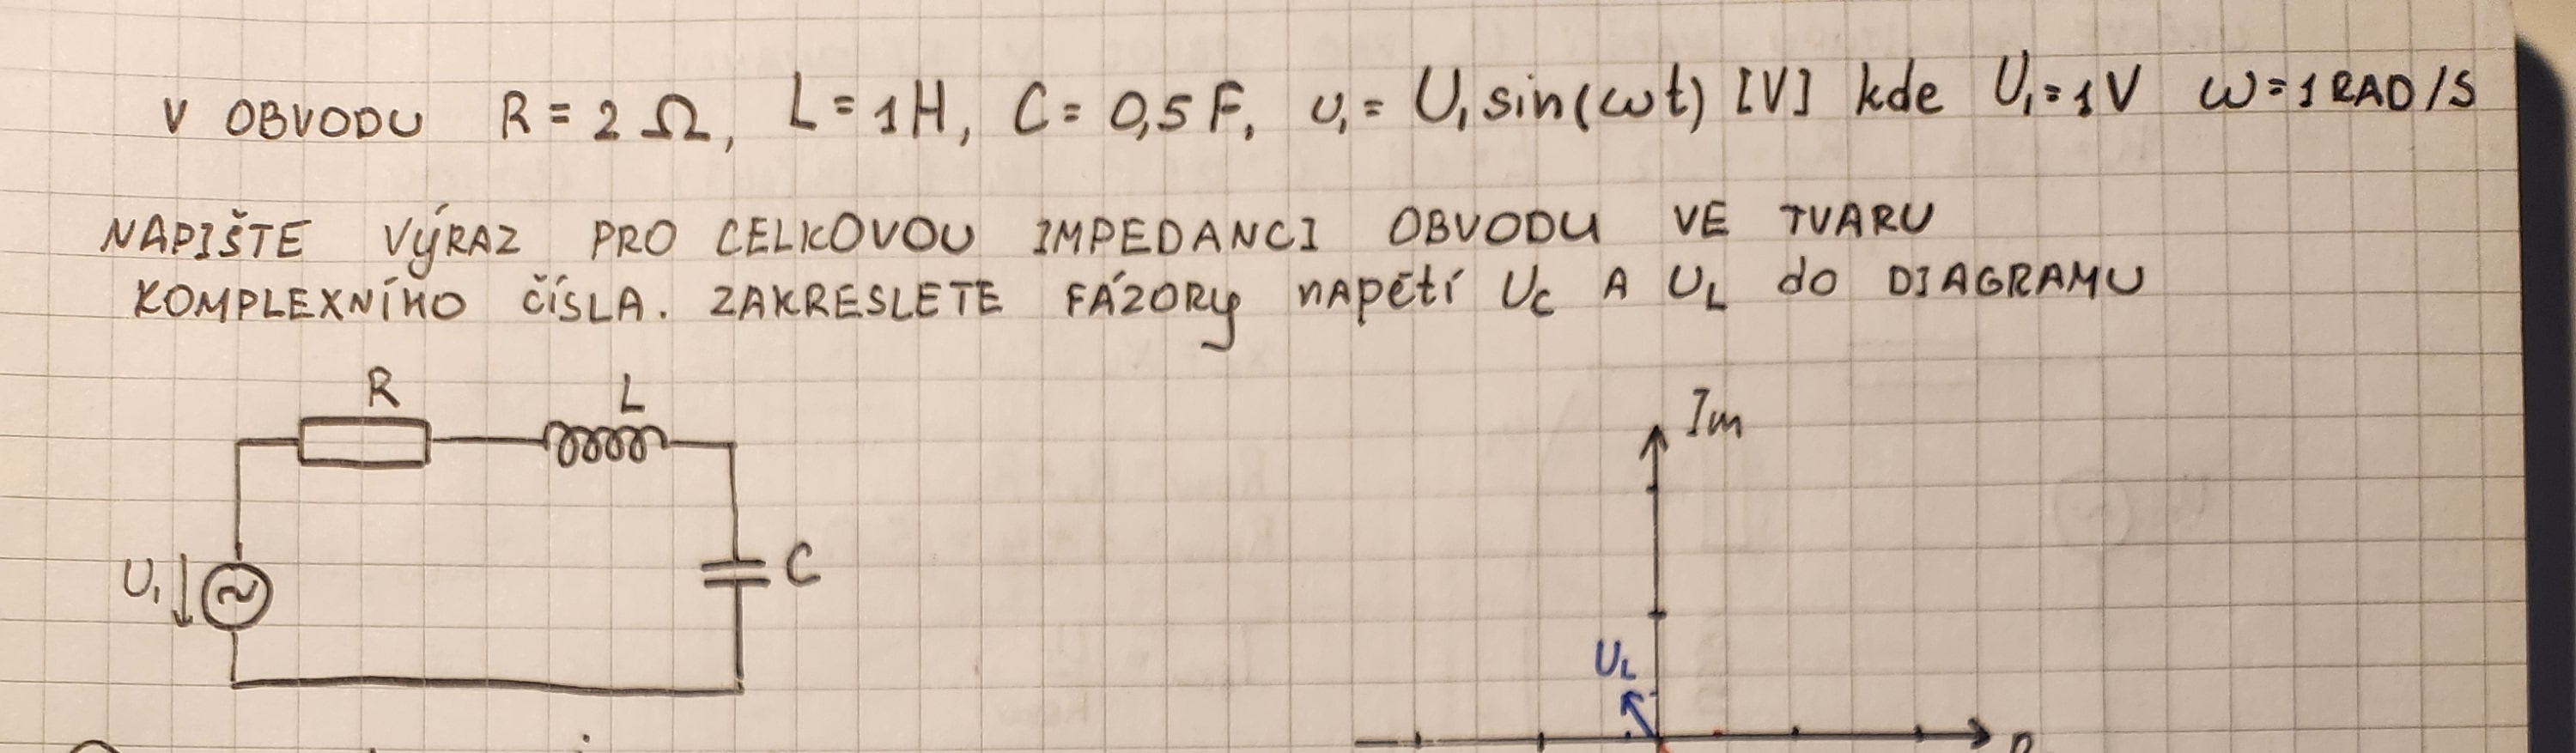 V OBVODU R = 2 Ω, L = 1H, C = 0,5 F, u₁ = U₁ sin(ωt) [V] kde U₁ = 1V ω = 1 RAD/S
NAPIŠTE VÝRAZ PRO CELKOVOU IMPEDANCI OBVODU VE TVARU
KOMPLEXNÍHO ČÍSLA. ZAKRESLETE FÁZORY NAPĚTÍ U_C A U_L do DIAGRAMU
R
L
Im
U₁
C
U_L